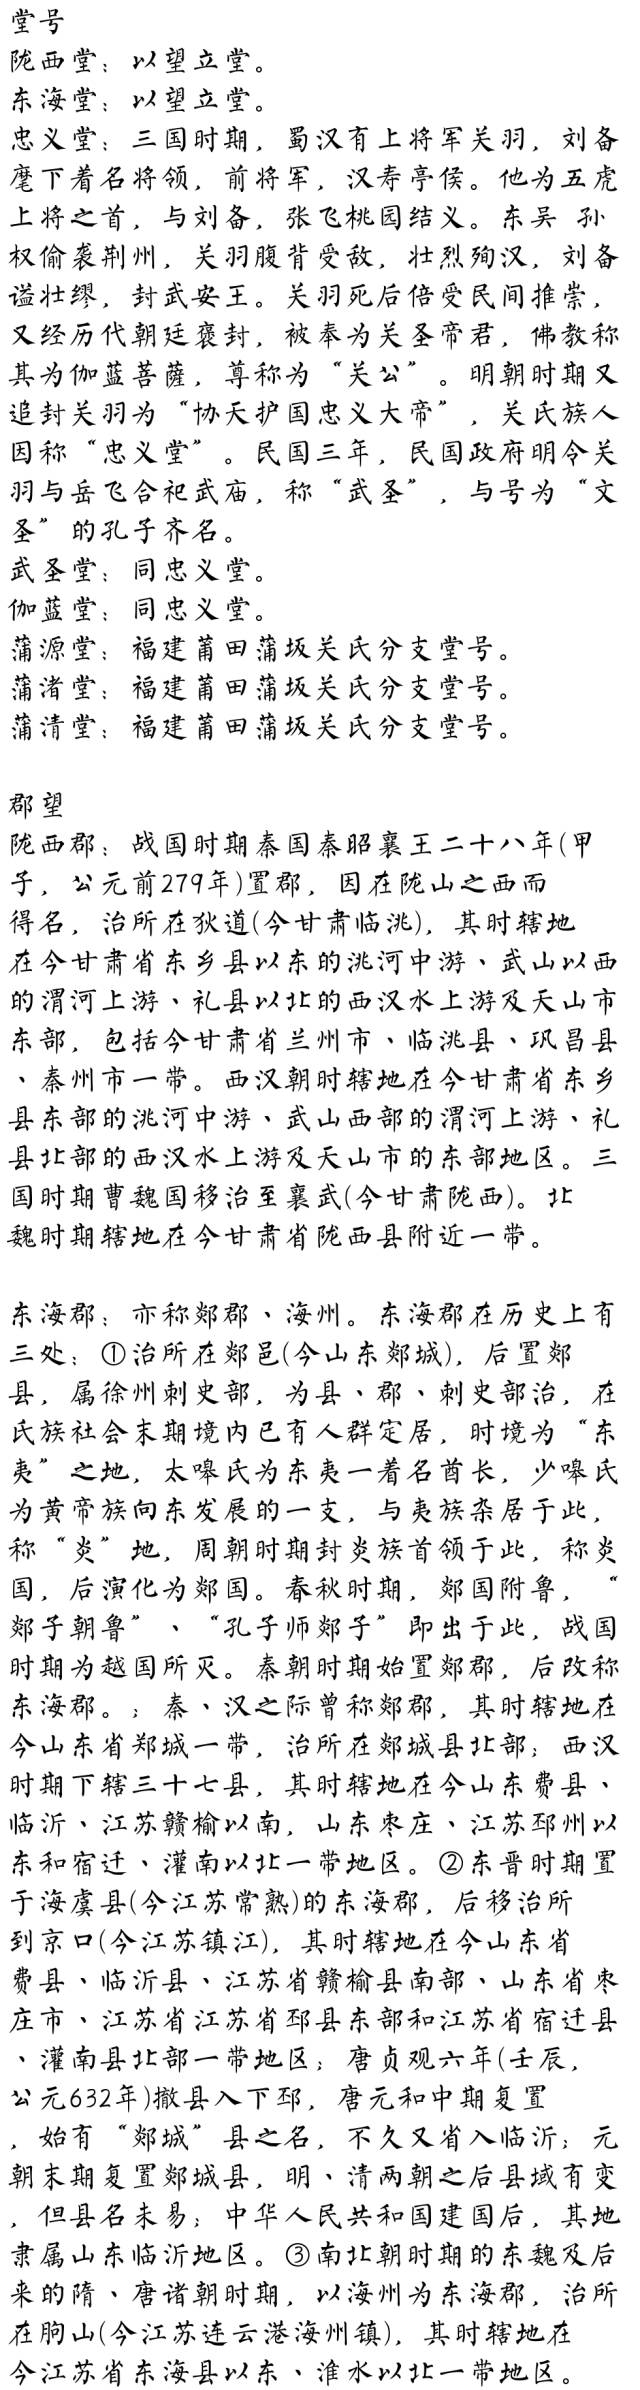 堂号
陇西堂：以望立堂。
东海堂：以望立堂。
忠义堂：三国时期，蜀汉有上将军关羽，刘备
麾下着名将领，前将军，汉寿亭侯。他为五虎
上将之首，与刘备，张飞桃园结义。东吴 孙
权偷袭荆州，关羽腹背受敌，壮烈殉汉，刘备
谥壮缪，封武安王。关羽死后倍受民间推崇，
又经历代朝廷褒封，被奉为关圣帝君，佛教称
其为伽蓝菩萨，尊称为“关公”。明朝时期又
追封关羽为“协天护国忠义大帝”，关氏族人
因称“忠义堂”。民国三年，民国政府明令关
羽与岳飞合祀武庙，称“武圣”，与号为“文
圣”的孔子齐名。
武圣堂：同忠义堂。
伽蓝堂：同忠义堂。
蒲源堂：福建莆田蒲坂关氏分支堂号。
蒲渚堂：福建莆田蒲坂关氏分支堂号。
蒲清堂：福建莆田蒲坂关氏分支堂号。
郡望
陇西郡：战国时期秦国秦昭襄王二十八年(甲
子，公元前279年)置郡，因在陇山之西而
得名，治所在狄道(今甘肃临洮)，其时辖地
在今甘肃省东乡县以东的洮河中游、武山以西
的渭河上游、礼县以北的西汉水上游及天山市
东部，包括今甘肃省兰州市、临洮县、巩昌县
、秦州市一带。西汉朝时辖地在今甘肃省东乡
县东部的洮河中游、武山西部的渭河上游、礼
县北部的西汉水上游及天山市的东部地区。三
国时期曹魏国移治至襄武(今甘肃陇西)。北
魏时期辖地在今甘肃省陇西县附近一带。
东海郡：亦称郯郡、海州。东海郡在历史上有
三处：①治所在郯邑(今山东郯城)，后置郯
县，属徐州刺史部，为县、郡、刺史部治，在
氏族社会末期境内已有人群定居，时境为“东
夷”之地，太嗥氏为东夷一着名酋长，少嗥氏
为黄帝族向东发展的一支，与夷族杂居于此，
称“炎”地，周朝时期封炎族首领于此，称炎
国，后演化为郯国。春秋时期，郯国附鲁，“
郯子朝鲁”、“孔子师郯子”即出于此，战国
时期为越国所灭。秦朝时期始置郯郡，后改称
东海郡。；秦、汉之际曾称郯郡，其时辖地在
今山东省郑城一带，治所在郯城县北部；西汉
时期下辖三十七县，其时辖地在今山东费县、
临沂、江苏赣榆以南，山东枣庄、江苏邳州以
东和宿迁、灌南以北一带地区。②东晋时期置
于海虞县(今江苏常熟)的东海郡，后移治所
到京口(今江苏镇江)，其时辖地在今山东省
费县、临沂县、江苏省赣榆县南部、山东省枣
庄市、江苏省江苏省邳县东部和江苏省宿迁县
、灌南县北部一带地区；唐贞观六年(壬辰，
公元632年)撤县入下邳，唐元和中期复置
，始有“郯城”县之名，不久又省入临沂；元
朝末期复置郯城县，明、清两朝之后县域有变
，但县名未易；中华人民共和国建国后，其地
隶属山东临沂地区。③南北朝时期的东魏及后
来的隋、唐诸朝时期，以海州为东海郡，治所
在朐山(今江苏连云港海州镇)，其时辖地在
今江苏省东海县以东、淮水以北一带地区。